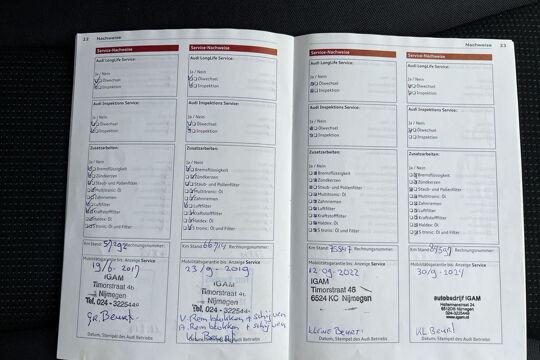 22 Nachweise
Service-Nachweise
Audi LongLife Service:
Ja / Nein
Ölwechsel
Inspektion
Audi Inspektions Service:
Ja / Nein
Ölwechsel
Inspektion
Zusatzarbeiten:
Ja / Nein
Bremsflüssigkeit
Zündkerzen
Staub- und Pollenfilter
Multitronic: Öl
Zahnriemen
Luftfilter
Kraftstofffilter
Haldex: Öl
S tronic: Öl und Filter
Km Stand: Rechnungsnummer:
Mobilitätsgarantie bis: Anzeige Service
19/6-2017
IGAM
Timorstraat 46
Nijmegen
Tel. 024-3225448
Gr. Beurt
Datum, Stempel des Audi Betriebs
Service-Nachweise
Audi LongLife Service:
Ja / Nein
Ölwechsel
Inspektion
Audi Inspektions Service:
Ja / Nein
Ölwechsel
Inspektion
Zusatzarbeiten:
Ja / Nein
Bremsflüssigkeit
Zündkerzen
Staub- und Pollenfilter
Multitronic: Öl
Zahnriemen
Luftfilter
Kraftstofffilter
Haldex: Öl
S tronic: Öl und Filter
Km Stand: 66719 Rechnungsnummer:
Mobilitätsgarantie bis: Anzeige Service
23/9-2019
IGAM
Timorstraat
Nijmegen
Tel. 024-3225448
V. Remblokken + schijven
A. Remblokken + schijven
Datum, Stempel des Audi Betriebs
Nachweise 23
Service-Nachweise
Audi LongLife Service:
Ja / Nein
Ölwechsel
Inspektion
Audi Inspektions Service:
Ja / Nein
Ölwechsel
Inspektion
Zusatzarbeiten:
Ja / Nein
Bremsflüssigkeit
Zündkerzen
Staub- und Pollenfilter
Multitronic: Öl
Zahnriemen
Luftfilter
Kraftstofffilter
Haldex: Öl
S tronic: Öl und Filter
Km Stand: Rechnungsnummer:
Mobilitätsgarantie bis: Anzeige Service
12-09-2022
IGAM
Timorstraat 46
6524 KC Nijmegen
Kleine Beurt
Datum, Stempel des Audi Betriebs
Service-Nachweise
Audi LongLife Service:
Ja / Nein
Ölwechsel
Inspektion
Audi Inspektions Service:
Ja / Nein
Ölwechsel
Inspektion
Zusatzarbeiten:
Ja / Nein
Bremsflüssigkeit
Zündkerzen
Staub- und Pollenfilter
Multitronic: Öl
Zahnriemen
Luftfilter
Kraftstofffilter
Haldex: Öl
S tronic: Öl und Filter
Km Stand: Rechnungsnummer:
Mobilitätsgarantie bis: Anzeige Service
30/9-2024
autobedrijf IGAM
www.igam.nl
Kl. Beurt
Datum, Stempel des Audi Betriebs